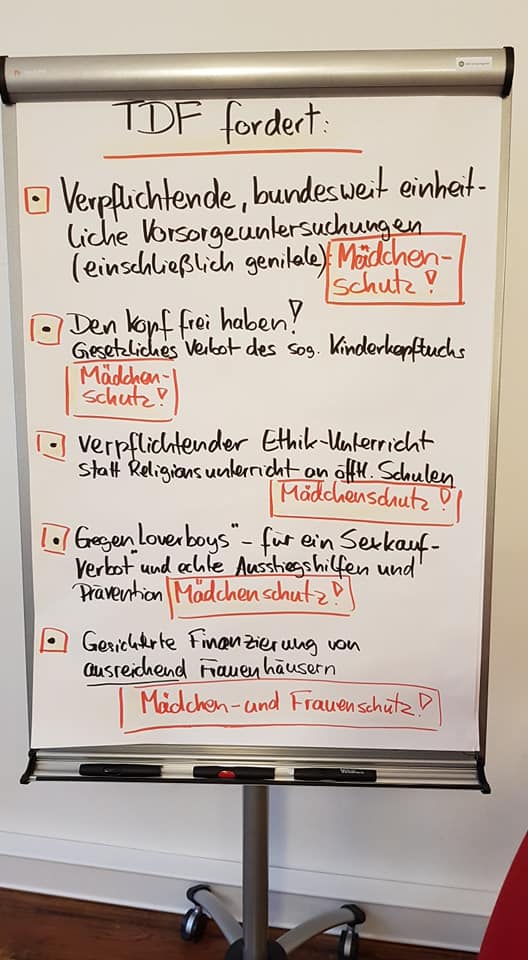 TDF fordert:
Verpflichtende, bundesweit einheit-
liche Vorsorgeuntersuchungen
(einschließlich genitale): Mädchen-
schutz!
Den Kopf frei haben!
Gesetzliches Verbot des sog. Kinderkopftuchs
Mädchen-
schutz!
Verpflichtender Ethik-Unterricht
statt Religionsunterricht an öfftl. Schulen
Mädchenschutz!
Gegen Loverboys" - für ein Sexkauf-
Verbot" und echte Ausstiegshilfen und
Prävention Mädchenschutz!
Gesicherte Finanzierung von
ausreichend Frauenhäusern
Mädchen- und Frauenschutz!